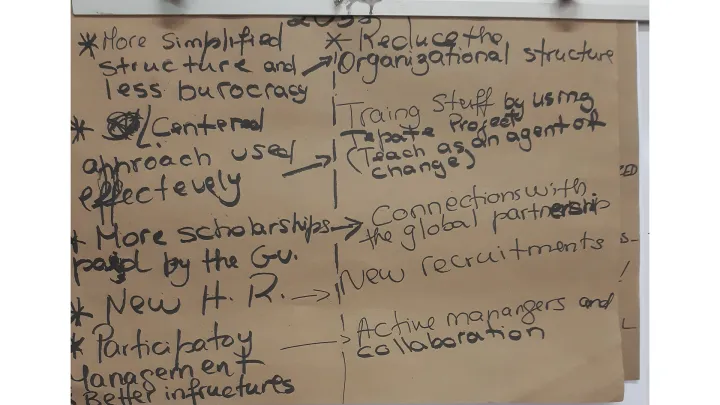 * More simplified
structure and
less burocracy
* L. Centered
approach used
effectevely
* More scholarships
payd by the Gv.
* New H. R.
* Participatoy
Management
Better infructures
* Reduce the
Organizational structure
Traing Stuff by using
Tepate Project
(Teach as an agent of
change)
Connections with
the global partnership
New recruitments
Active mapangers and
collaboration